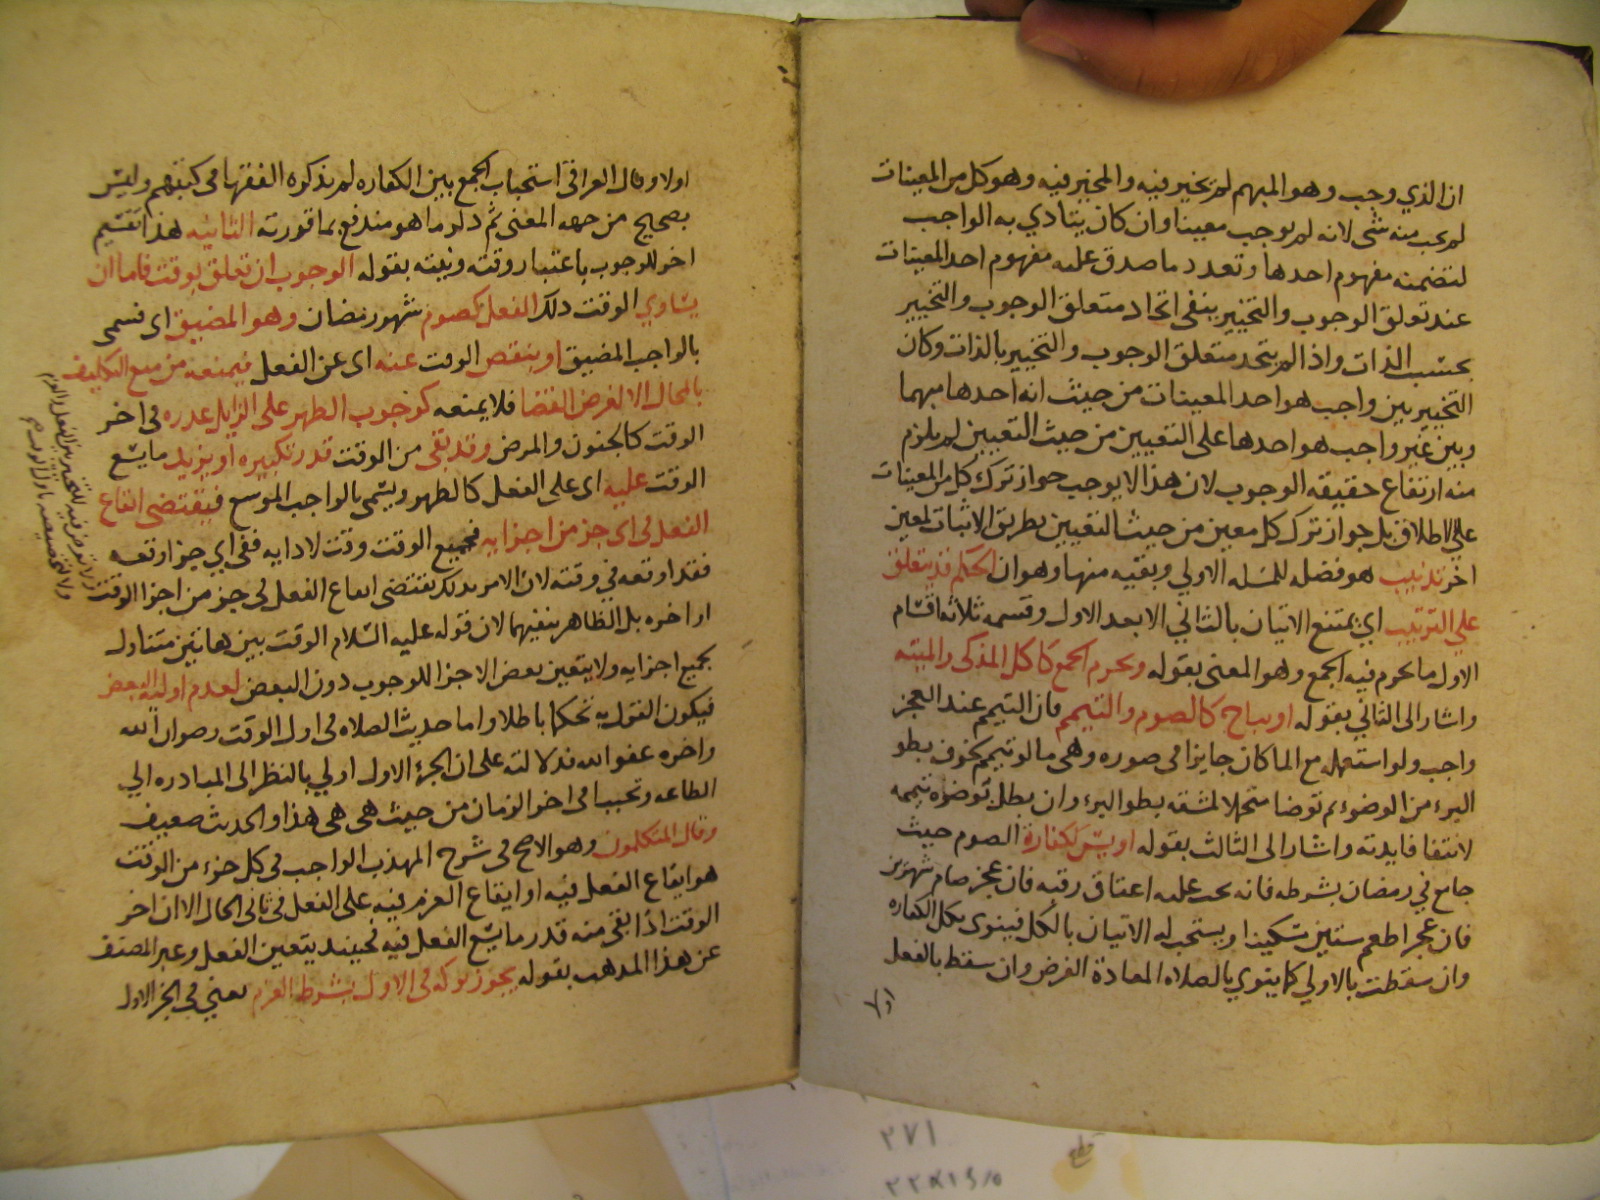 ان الذي وجب وهو المبهم لم يخير فيه والمخير فيه وهو كل من المعينات
لم يجب منه شى لانه لم يوجب معينا وان كان يتادي به الواجب
لتضمنه مفهوم احدها وتعدد ما صدق عليه مفهوم احد المعينات
عند تعلق الوجوب والتخيير ينفى اتحاد متعلق الوجوب والتخيير
بحسب الذات واذا لم يتحد متعلق الوجوب والتخيير بالذات وكان
التخيير بين واجب هو احد المعينات من حيث انه احدها مبهما
وبين غير واجب هو احدها على التعيين من حيث التعيين لم يلزم
منه ارتفاع حقيقه الوجوب لان هذا لا يوجب جواز ترك كل من المعينات
علي الاطلاق بل جواز ترك كل معين من حيث التعيين بطريق الاتيان لمعين
اخر تذنيب هو فضله للمسله الاولي وبقيه منها وهو ان الحكم قد يتعلق
علي الترتيب اي يمتنع الاتيان بالثاني الا بعد الاول وقسمه ثلاثه اقسام
الاول ما يحرم فيه الجمع وهو المعنى بقوله ويحرم الجمع كاكل المذكى والميته
واشار الى الثاني بقوله او يباح كالصوم والتيمم فان التيمم عند العجز
واجب ولو استعمله مع الما كان جايزا فى صوره وهى ما لو تيمم لخوف بطو
البرء من الوضوء ثم توضا متحملا لمشقه بطو البرء وان بطل بوضوءه تيممه
لانتفا فايدته واشار الى الثالث بقوله او يسن ككفارة الصوم حيث
جامع في رمضان بشرطه فانه يجب عليه اعتاق رقبه فان عجز صام شهرين
فان عجز اطعم ستين مسكينا ويستحب له الاتيان بالكل فينوى بكل الكفاره
وان سقطت بالاولي كما ينوي بالصلاه المعادة الفرض وان سقط بالفعل
اولا وقال العراقي استحباب الجمع بين الكفاره لم يذكره الفقها فى كتبهم وليس
بصحيح من جهه المعنى ثم ذكر ما هو مندفع بما قررته الثانيه هذا تقسيم
اخر للوجوب باعتبار وقته وبينه بقوله الوجوب ان تعلق بوقت فاما ان
يساوي الوقت ذلك الفعل كصوم شهر رمضان وهو المضيق اى فسمى
بالواجب المضيق او ينقص الوقت عنه اى عن الفعل فيمنعه من منع التكليف
بالمحال الا لغرض القضا فلا يمنعه كوجوب الظهر على الزايل عذره فى اخر
الوقت كالجنون والمرض وقد بقى من الوقت قدر تكبيره او يزيد ما يسع
الوقت عليه اى على الفعل كالظهر ويسمى بالواجب الموسع فيقتضى ايقاع
الفعل فى اى جز من اجزايه فجميع الوقت وقت لادايه ففى اي جز اوقعه
فقد اوقعه في وقته لان الامر بذلك يقتضى ايقاع الفعل فى جز من اجزا الوقت
او اخره بل الظاهر ينفيهما لان قوله عليه السلام الوقت بين هاتين متناول
لجميع اجزايه ولا يتعين بعض الاجزا للوجوب دون البعض لعدم اوليه البعض
فيكون القول به تحكما باطلا واما حديث الصلاه فى اول الوقت رضوان الله
واخره عفو الله فدلالته على ان الجزء الاول اولي بالنظر الى المبادره الي
الطاعه وتحببا فى اخر الزمان من حيث هى هى هذا والحديث ضعيف
وقال المتكلمون وهو الاصح فى شرح المهذب الواجب فى كل جزء من الوقت
هو ايقاع الفعل فيه او ايقاع العزم فيه على الفعل فى ثانى الحال الا ان اخر
الوقت اذا بقى منه قدر ما يسع الفعل فيه فحينيذ يتعين الفعل وعبر المصنف
عن هذا المذهب بقوله يجوز تركه فى الاول بشرط العزم يعني فى الجز الاول
٢٧١